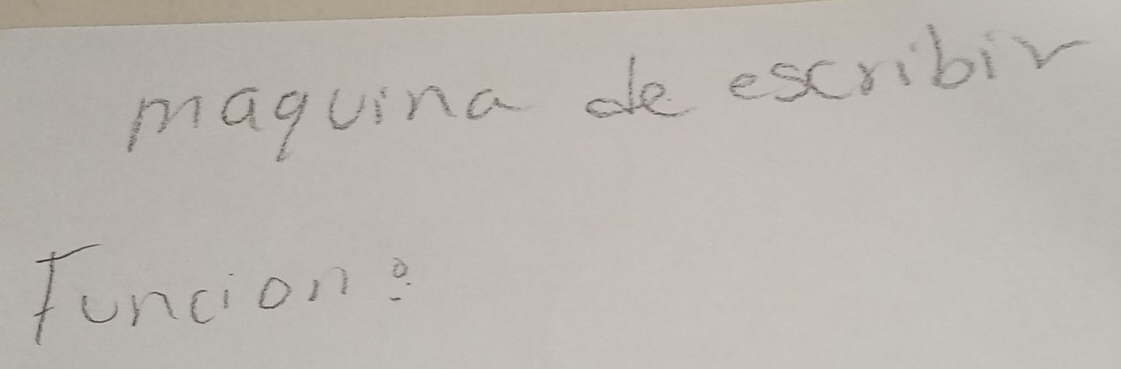 maquina de escribir
Funcion: